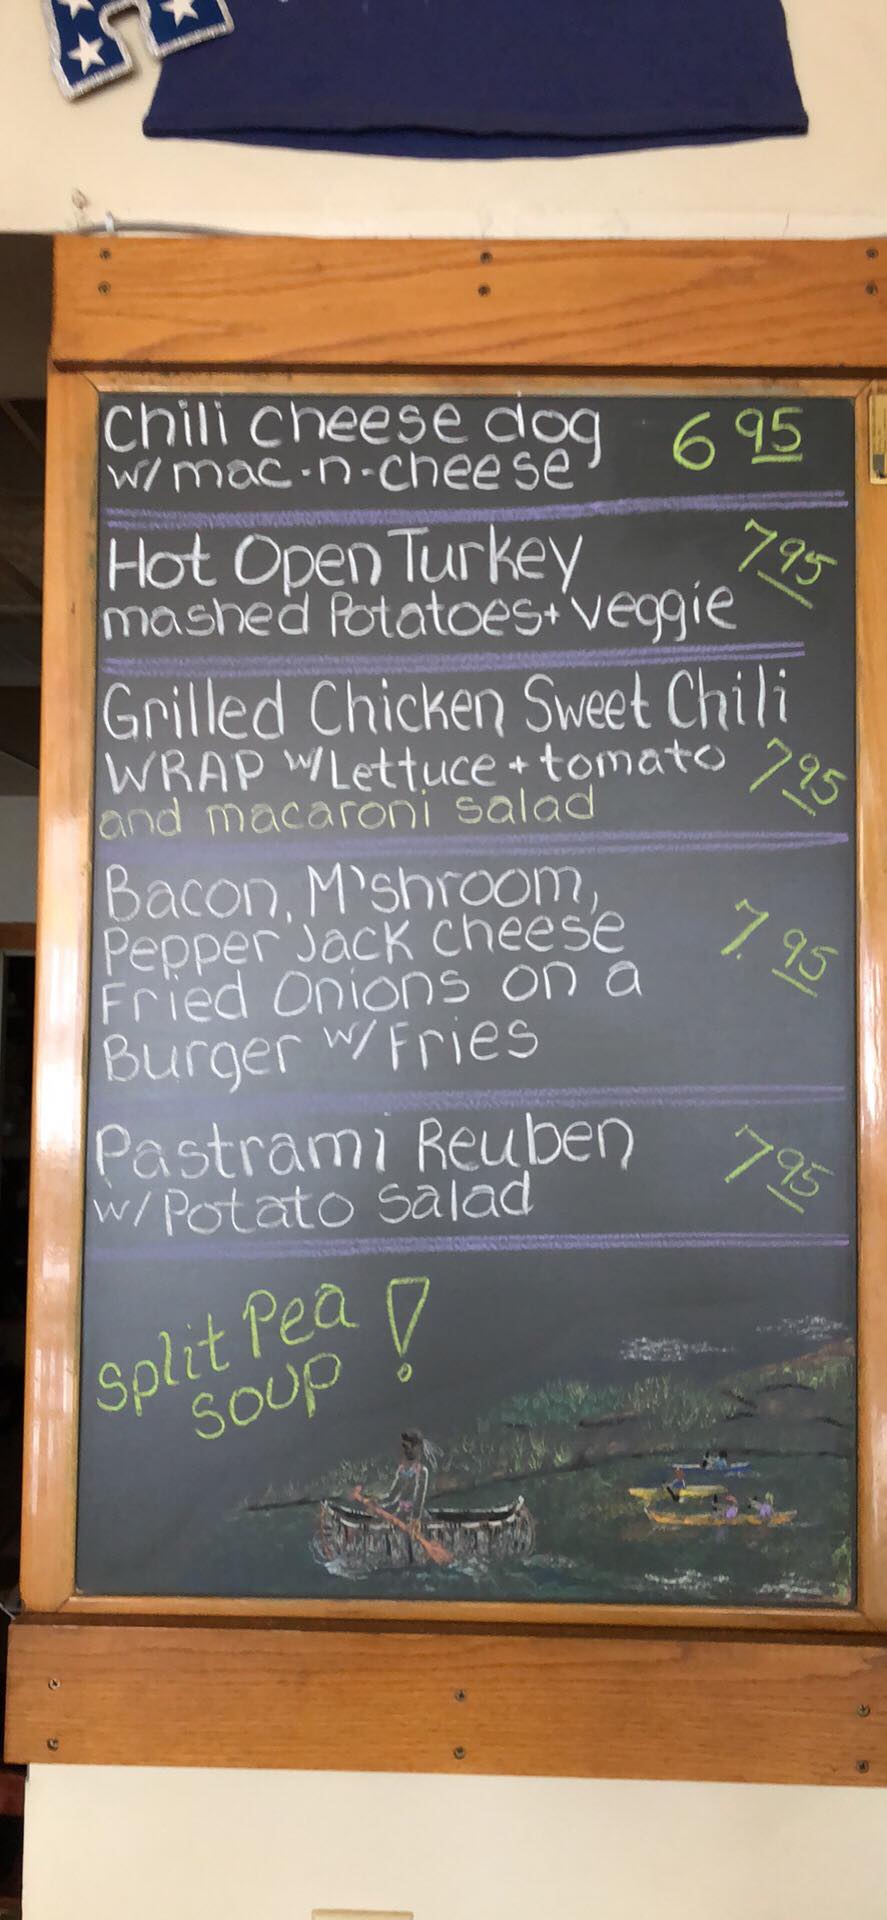 Chili cheese dog 6 95
w/ mac-n-cheese
Hot Open Turkey 7.95
mashed Potatoes + veggie
Grilled Chicken Sweet Chili
WRAP w/ Lettuce + tomato 7.95
and macaroni salad
Bacon, M'shroom,
Pepper Jack cheese 7.95
Fried Onions on a
Burger w/ Fries
Pastrami Reuben 7.95
w/ Potato Salad
Split Pea !
Soup